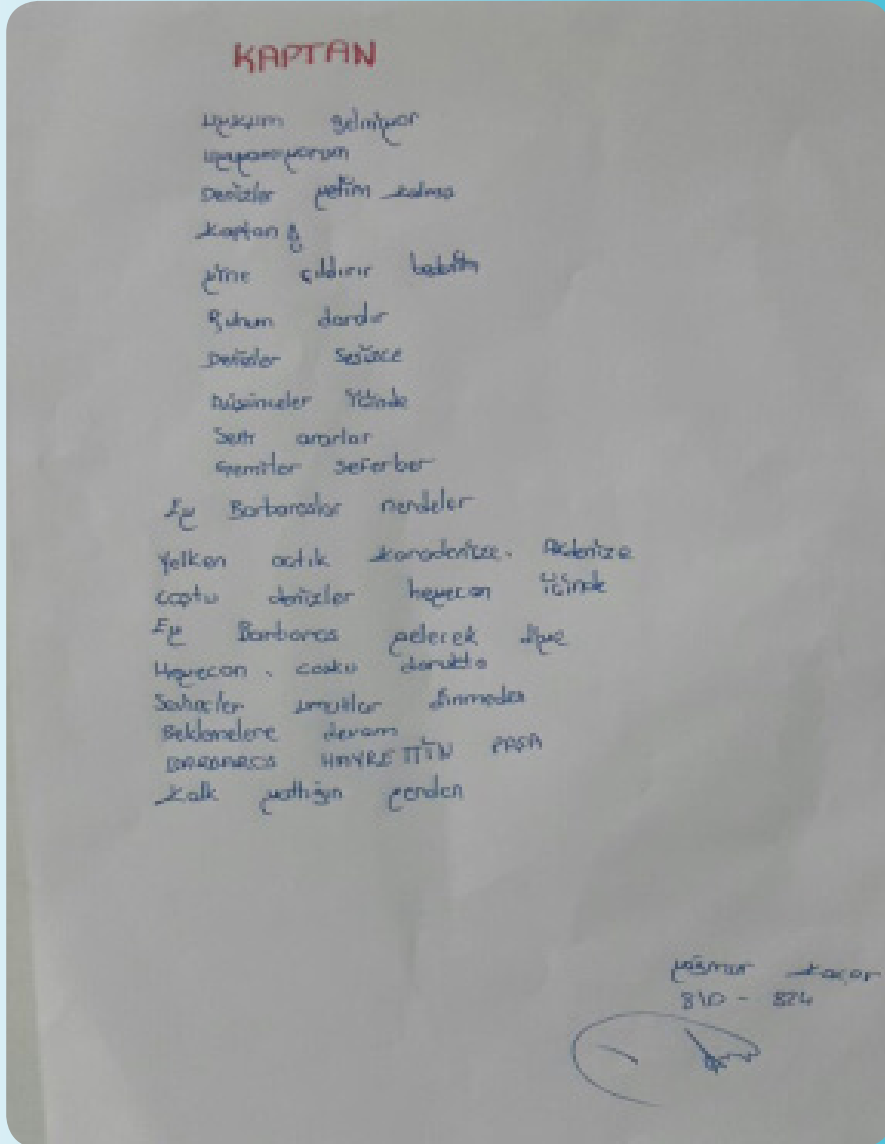 KAPTAN
uykum gelmiyor
uyuyamıyorum
Denizler yetim kalmış
Kaptan
yine çıldırır
Ruhum dardır
Denizler Sesizce
Düşünceler içinde
Sefir ararlar
Gemiler seferber
Ey Barbaroslar nerdeler
Yelken actık karadenize, Akdenize
coştu denizler heyecan içinde
Ey Barbaros gelecek diye
Heyecan, cosku dorukta
umutlar dinmeden
Beklemelere devam
BARBAROS HAYRETTİN PAŞA
Kalk yattığın yerden
yağmur kaçar
810 - 824